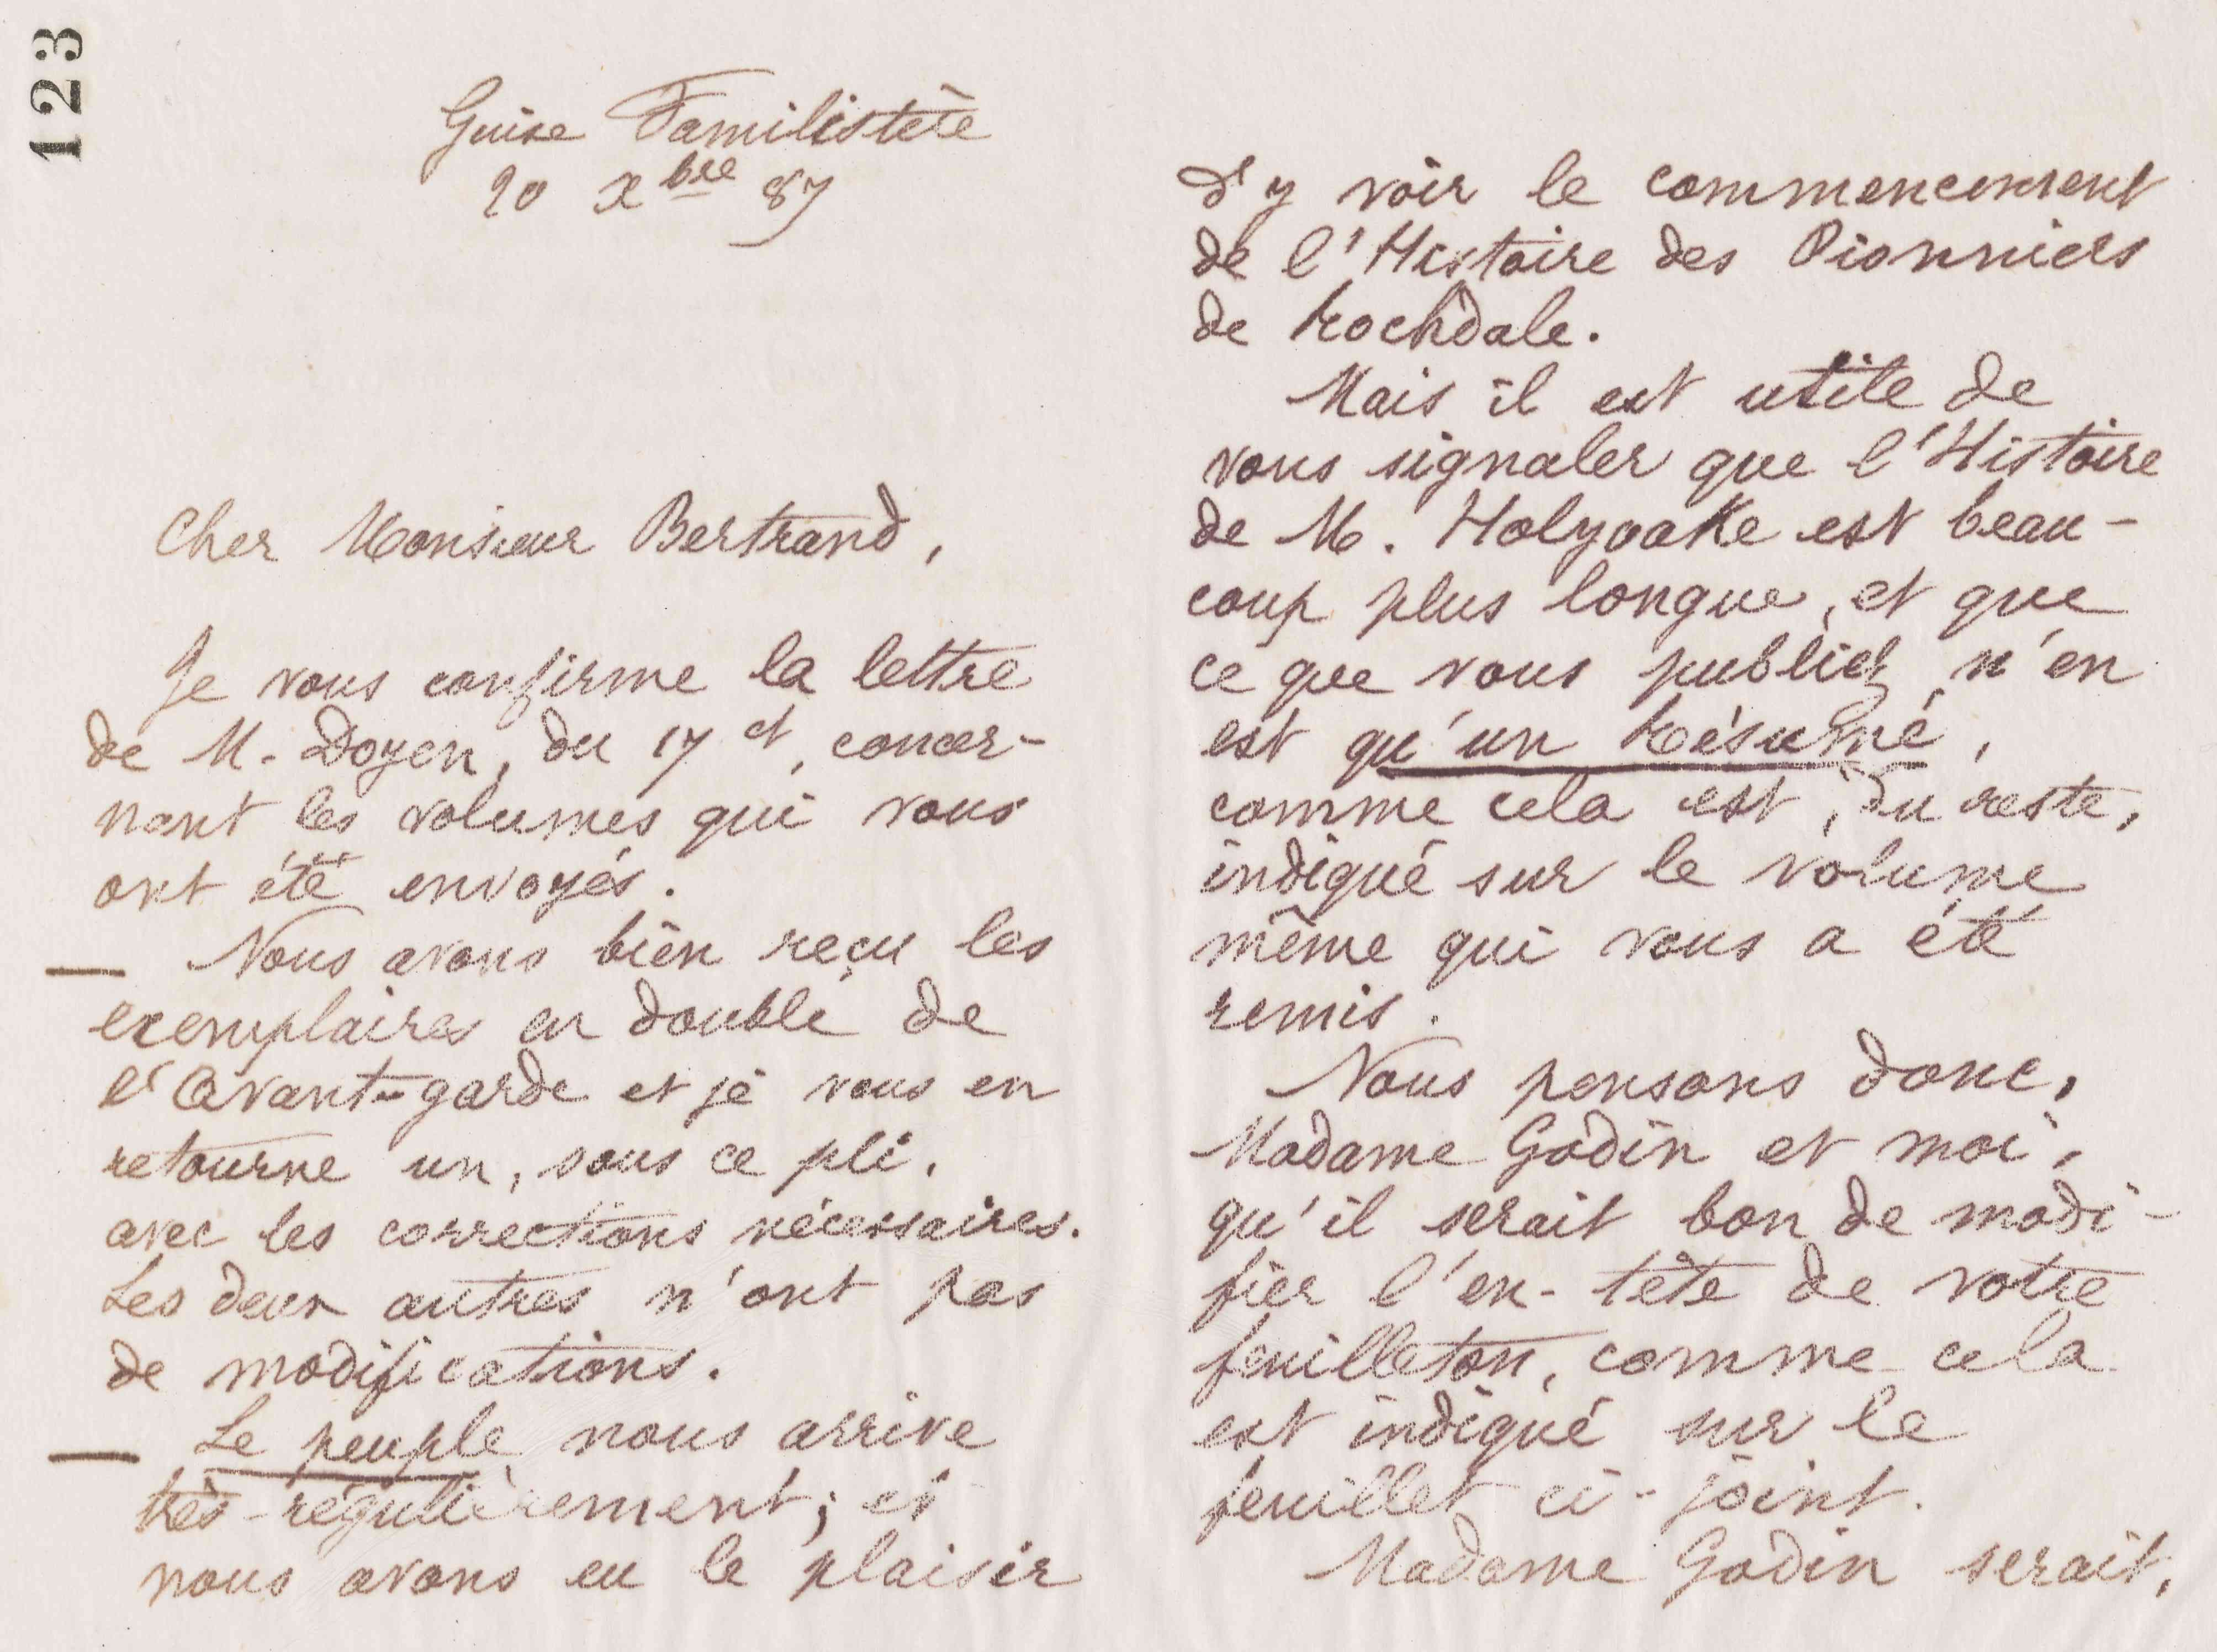 123
Guise Familistère
20 Xbre 87
Cher Monsieur Bertrand,
Je vous confirme la lettre
de M. Doyen, du 17 ct, concer-
nant les volumes qui vous
ont été envoyés.
— Nous avons bien reçu les
exemplaires en double de
l'Avant-garde et je vous en
retourne un, sous ce pli,
avec les corrections nécessaires.
Les deux autres n'ont pas
de modifications.
— Le peuple nous arrive
très-régulièrement; et
nous avons eu le plaisir
d'y voir le commencement
de l'Histoire des Pionniers
de Rochdale.
Mais il est utile de
vous signaler que l'Histoire
de M. Holyoake est beau-
coup plus longue, et que
ce que vous publiez n'en
est qu'un Résumé,
comme cela est, du reste,
indiqué sur le volume
même qui vous a été
remis.
Nous pensons donc,
Madame Godin et moi,
qu'il serait bon de modi-
fier l'en-tête de votre
feuilleton, comme cela
est indiqué sur le
feuillet ci-joint.
Madame Godin serait,